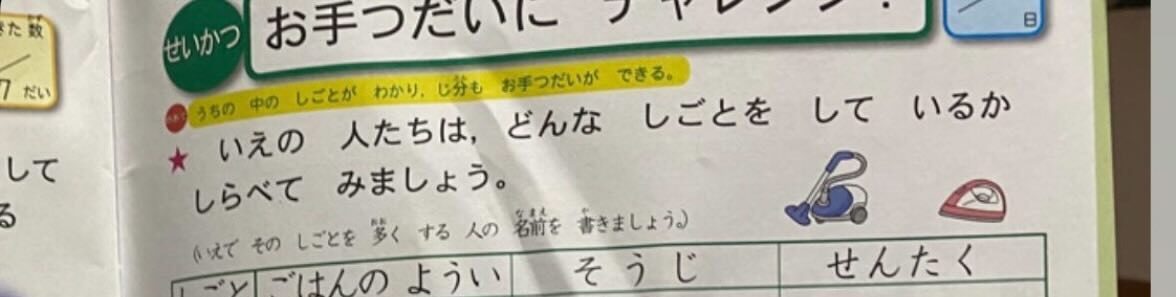 せいかつ
お手つだいに チャレンジ!
日
きた数
7 だい
うちの 中の しごとが わかり, じ分も お手つだいが できる。
★ いえの 人たちは, どんな しごとを して いるか
しらべて みましょう。
(いえで その しごとを 多く する 人の 名前を 書きましょう。)
しごと ごはんの ようい そうじ せんたく
して
る